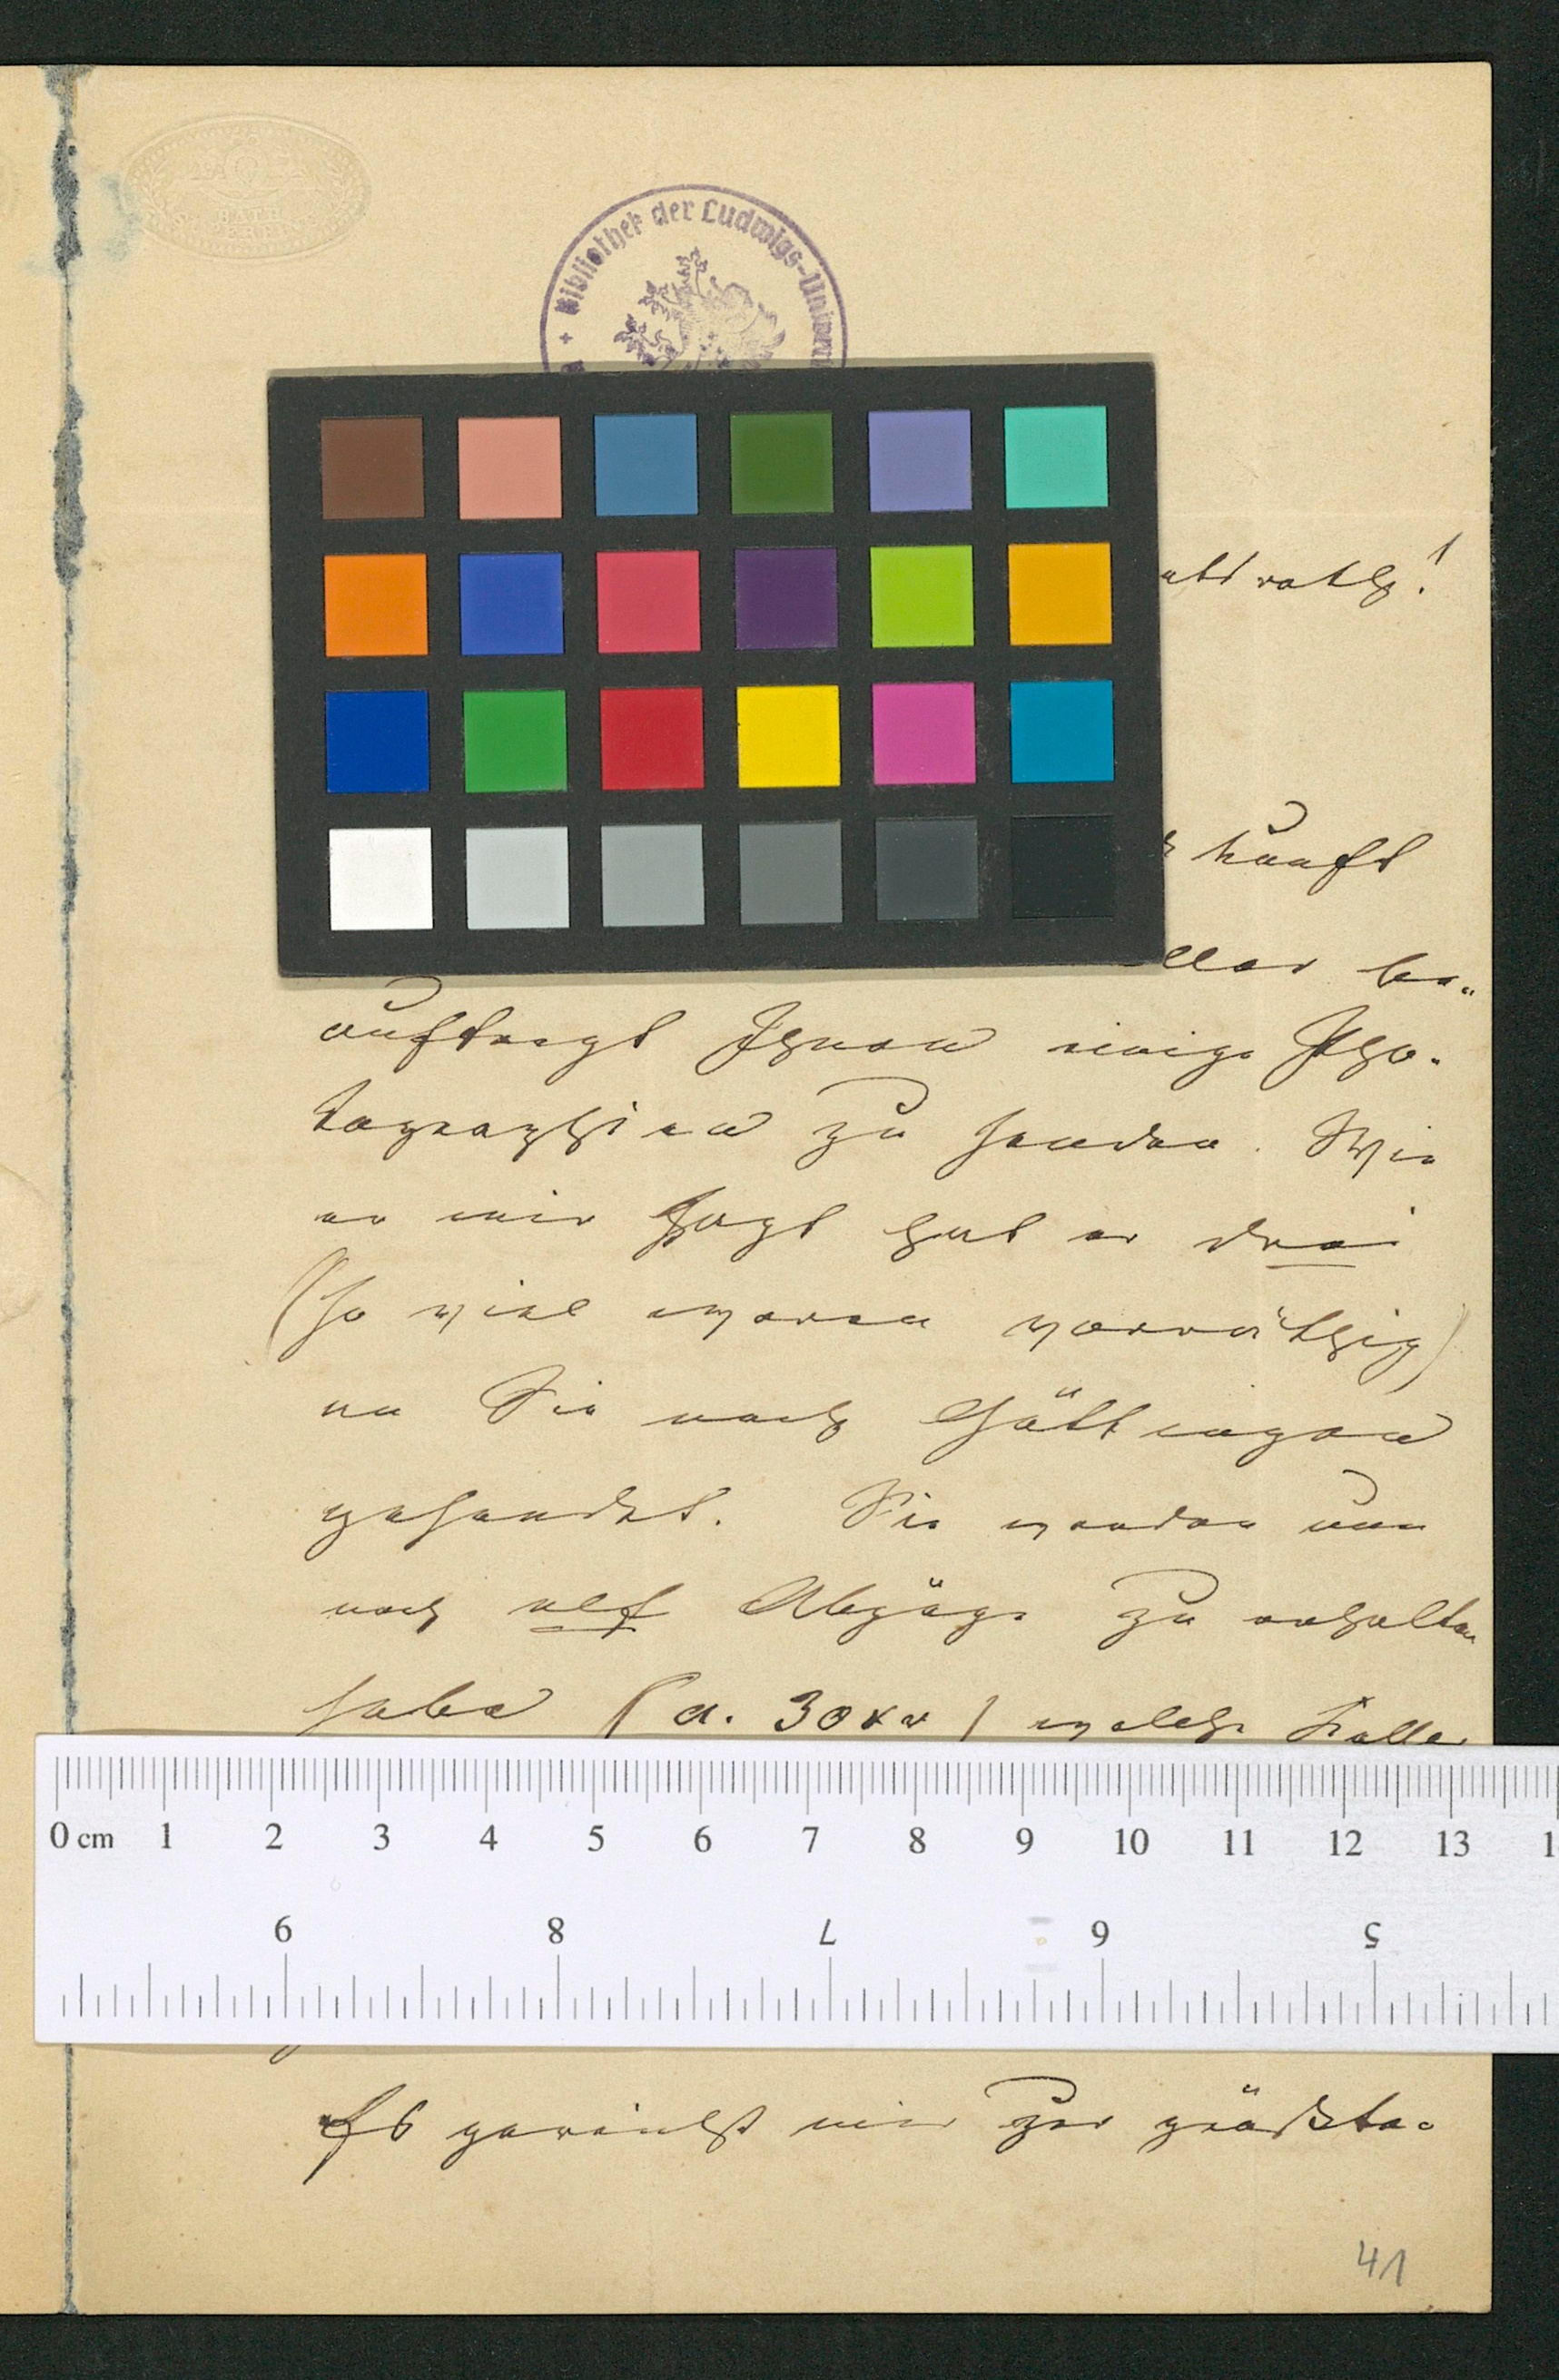 BATH
+ Bibliothek der Ludwigs-Univer
rath!
kunft
ller be-
auftragt Ihnen einige Pho-
tographien zu senden. Wie
er mir sagt hat er drei
(so viel waren vorräthig)
an Sie nach Göttingen
gesandt. Sie werden nun
noch elf Abzüge zu erhalten
haben (a. 30 xr) welche Keller
0 cm 1 2 3 4 5 6 7 8 9 10 11 12 13 1
9 8 7 6 5
Es gereicht mir zur größten
41